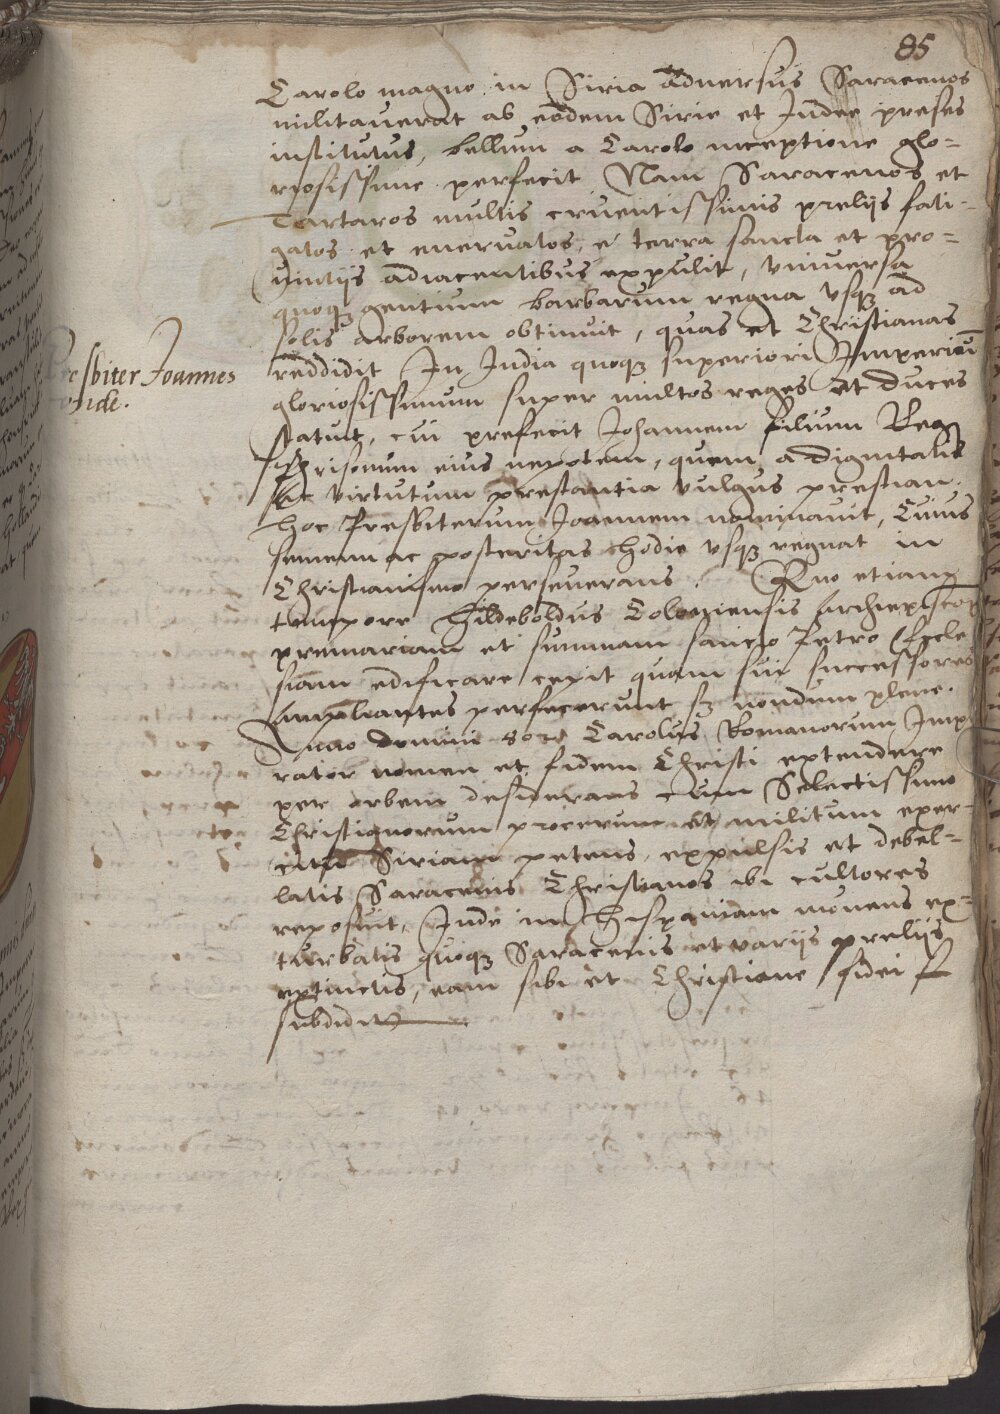 85
Carolo magno in Siria Aduersus Saracenos
militauerat ab eodem Sirie et Iudee preses
institutus, bellum a Carolo inceptione glo-
riosissime perfecit Nam Saracenos et
Tartaros multis cruentissimis prelijs fati-
gatos et eneruatos, e terra sancta et pro-
uintijs adiacentibus expulit, vniuersa
quoq gentium barbarum regna vsq ad
solis arborem obtinuit, quas et Christianas
reddidit In India quoq superiori Imperiū
gloriosissimum super multos reges et duces
statuit, cui prefecit Johannem filium Reg
eius nepotem, quem a dignitatis
ac virtutum prestantia vulgus prestian
hoc Presbiterum Joannem nominauit, Cuius
semen ac posteritas hodie vsq regnat in
Christianismo perseuerans. Quo etiam
tempore Hildeboldus Coloniensis Archiepiscop
premariam et summam sancto Petro Eccle
siam edificare cepit quam sui successores
Ampliantes perfecerunt sz nondum plene.
Anno domini Carolus Romanorum Impe
rator nomen et fidem Christi extendere
per orbem desiderans cum Selectissimo
Christianorum procerum et militum exer-
citu Siriam petens, expulsis et debel-
latis Saracenis Christianos ibi cultores
reposuit, Inde in Hispaniam mouens ex-
turbatis quoq Saracenis et varijs prelijs
extinctis, eam sibi et Christiane fidei
subdidit
Presbiter Joannes
Indie.